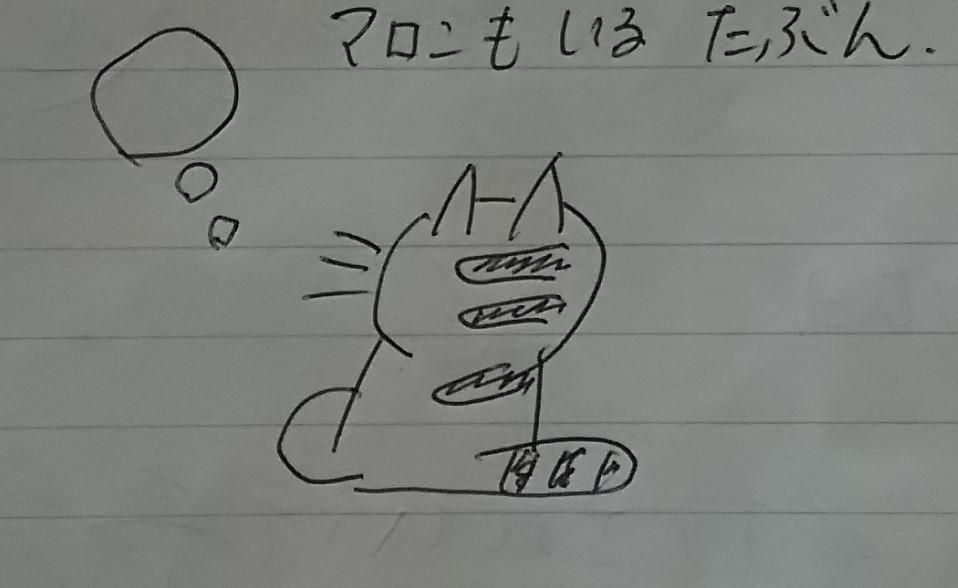 マロンもいる たぶん.